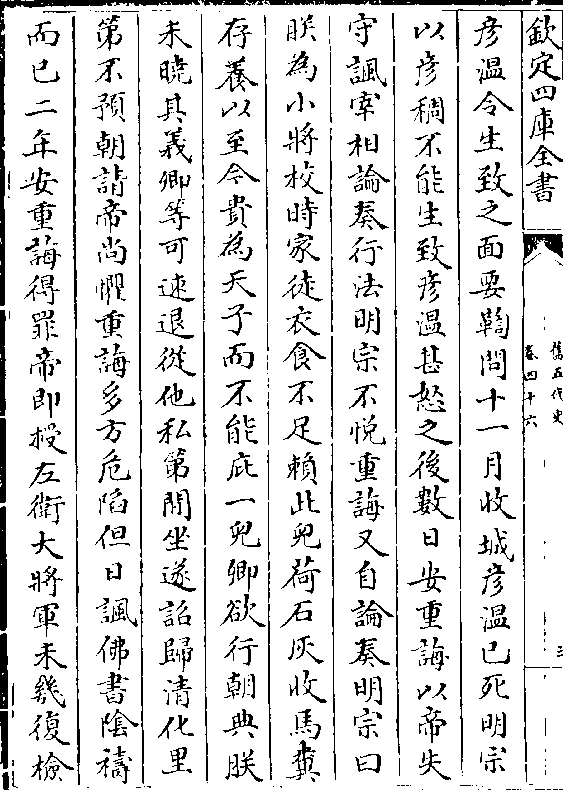 欽定四庫全書
舊五代史
卷四十六
三
彦溫令生致之面要鞫問十一月收城彦溫已死明宗
以彦稠不能生致彦溫甚怒之後數日安重誨以帝失
守諷宰相論奏行法明宗不悅重誨又自論奏明宗曰
朕為小將校時家徒衣食不足賴此兒荷石灰收馬糞
存養以至今貴為天子而不能庇一兒卿欲行朝典朕
未曉其義卿等可速退從他私第閒坐遂詔歸清化里
第不預朝請帝尚懼重誨多方危陷但日諷佛書陰禱
而已二年安重誨得罪帝即授左衛大將軍未幾復檢